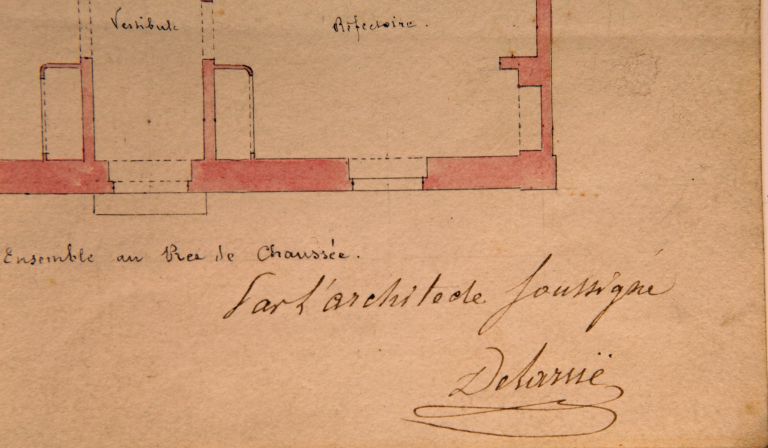 Vestibule
Réfectoire.
Ensemble au Rez de Chaussée.
Par l'architecte soussigné
Delarüe